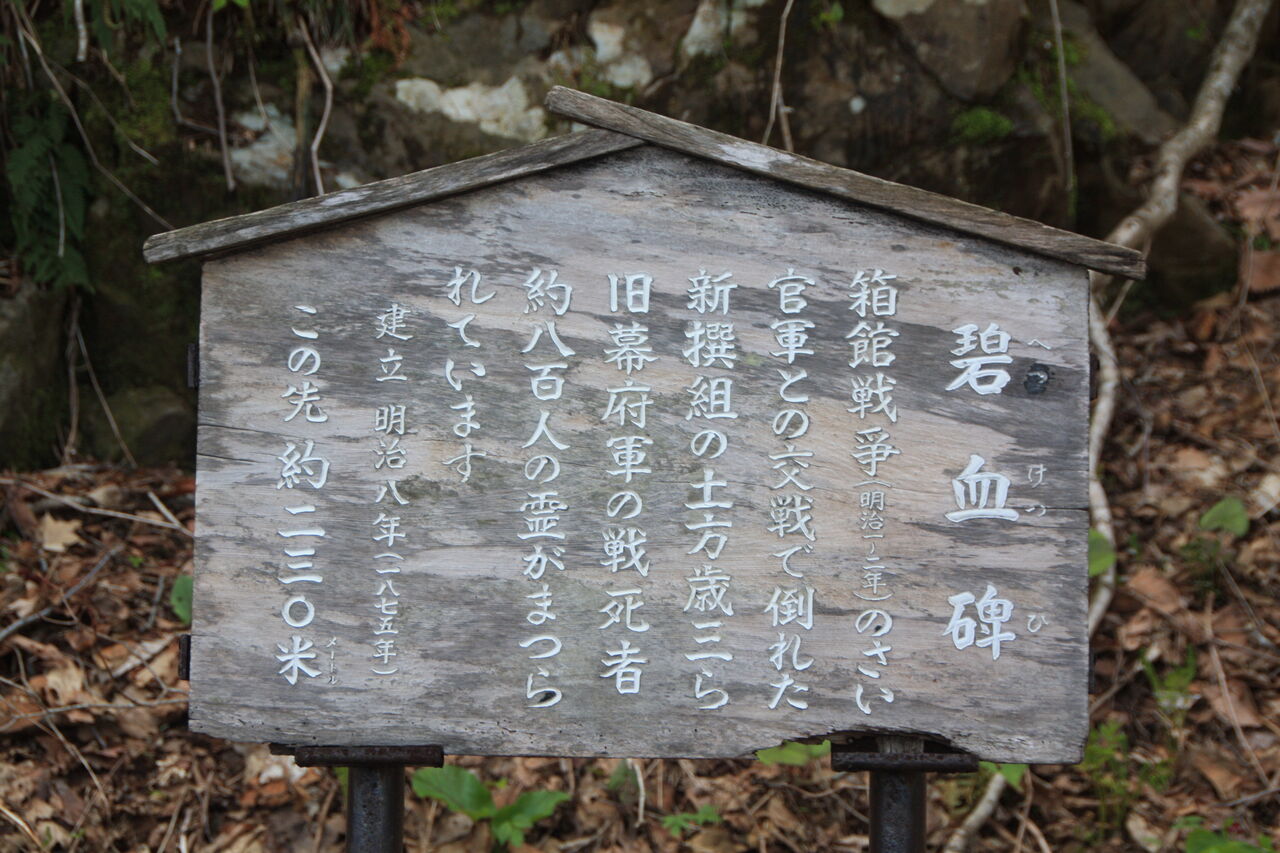 碧血碑
へ けつ ひ
箱館戦争（明治一～二年）のさい
官軍との交戦で倒れた
新撰組の土方歳三ら
旧幕府軍の戦死者
約八百人の霊がまつら
れています
建立 明治八年（一八七五年）
この先 約二三〇米
メートル